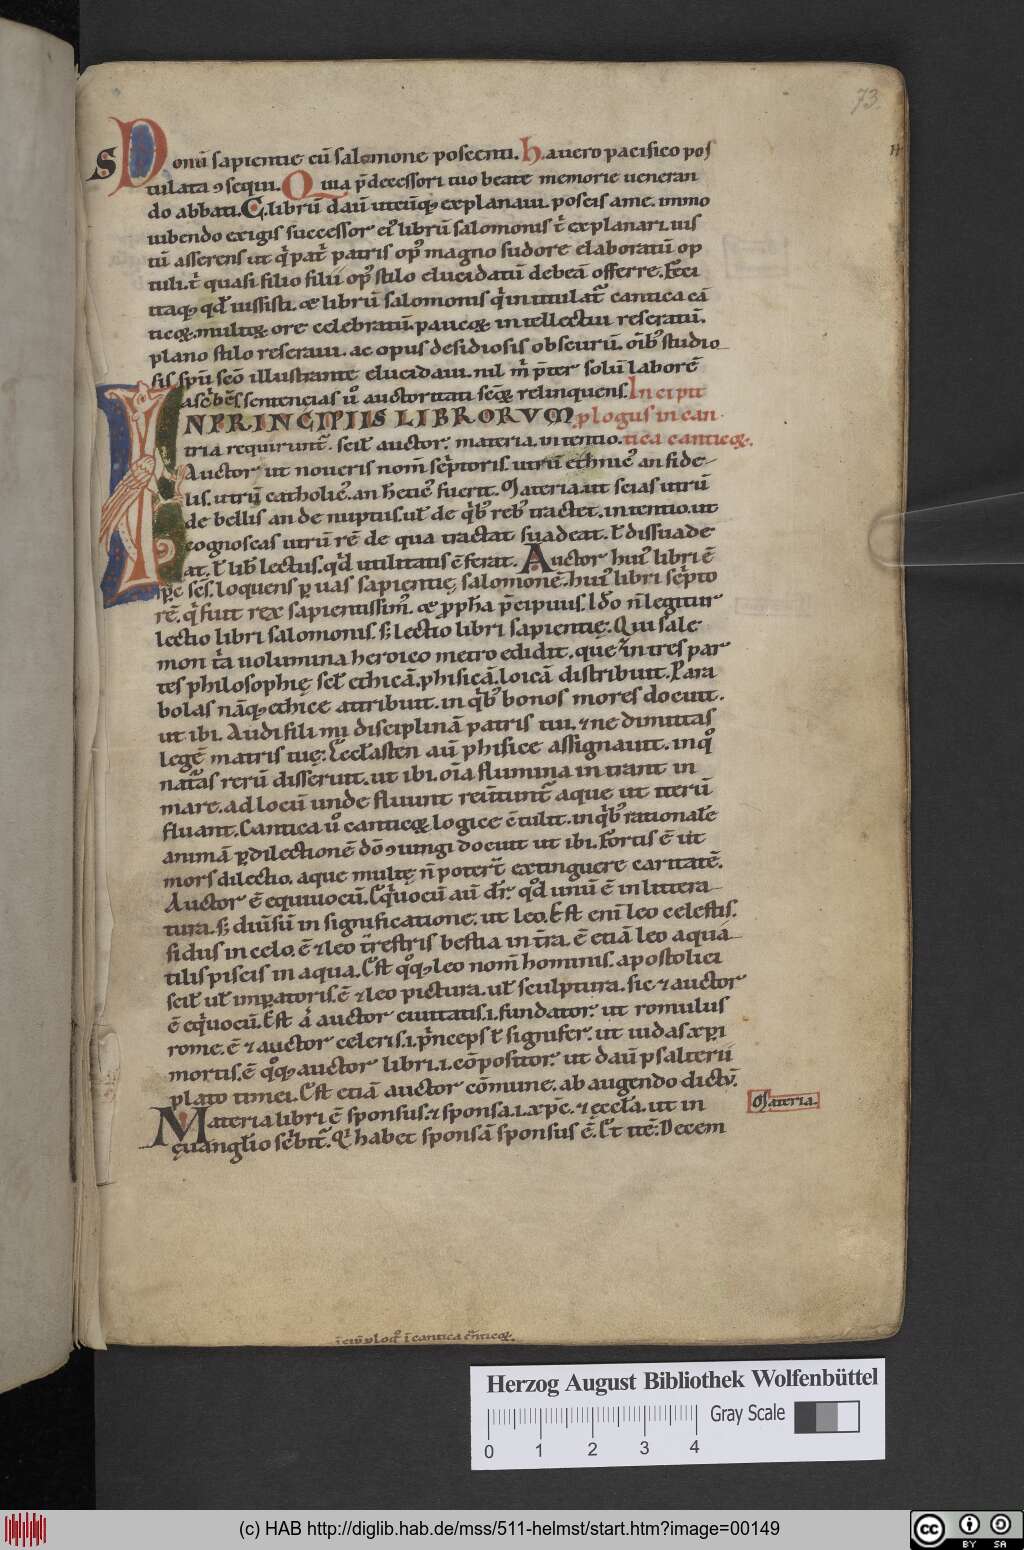 73.
S Donū sapientie cū salomone poscenti. h. auero pacifico pos
tulata ꝯsequi. Quia p̄decessori tuo beate memorie ueneran
do abbati. C. librū dauid utcūq; explanaui. poscis a me. immo
iubendo exigis successor eiꝰ librū salomonis t̄ explanari. ius
tū asserens ut q̄ pat̄ patris opꝰ magno sudore elaboratū op
tuli. t̄ quasi filio filii opꝰ stilo elucidatū debeā offerre. Feci
itaq; qd̄ iussisti. & librū salomonis q̄ intitulat̄ cantica cā
ticoꝝ. multoꝝ ore celebratū. paucoꝝ intellectui reseratū.
plano stilo reseraui. ac opus desidiosis obscurū. oīb; studio
sis. spū sc̄o illustrante elucidaui. nil m̄ p̄ter solū laborē
ascbēs. sentencias ū auctoritati sc̄oꝝ relinquens. Incipit
IN PRINCIPIIS LIBRORVM plogus in can
tria requirunt̄. scil̄ auctor. materia. intentio. tica canticoꝝ.
Auctor ut noueris nom̄ sc̄ptoris. utrū ethnicꝰ an fide
lis. utrū catholicꝰ. an h̄eticꝰ fuerit. Materia. ut scias utrū
de bellis an de nuptiis. ul̄ de q̄b; reb; tractet. intentio. ut
cognoscas utrū rē de qua tractat suadeat. l̄ dissuade
at. l̄ lib̄ lectus. q̄d utilitatis c̄ferat. Auctor huiꝰ libri ē
ip̄e sc̄s. loquens ꝑ uas sapientię salomonē. huiꝰ libri sc̄pto
rē. q̄ fuit rex sapientissimꝰ. & ꝓph̄a p̄cipuus. Id̄o n̄ legitur
lectio libri salomonis. s; lectio libri sapientię. Qui sale
mon t̄a uolumina heroico metro edidit. que in tres par
tes philosophię scl̄ ethicā. phisicā. loicā distribuit. Para
bolas nāq; ethice attribuit. in q̄b; bonos mores docuit.
ut ibi. Audi fili mi disciplinā patris tui. & ne dimittas
legē matris tuę. Eccl̄asten aū phisice assignauit. in qͦ
nat̄as rerū disseruit. ut ibi. oīa flumina intrant in
mare. ad locū unde fluunt reūtunt̄ aque ut iterū
fluant. Cantica ū canticoꝝ logice c̄tulit. in q̄b; rationalē
animā ꝑ dilectionē dō ꝯiungi docuit ut ibi. Fortis ē ut
mors dilectio. aque multę n̄ potert̄ extinguere caritatē.
Auctor ē equiuocū. Eq̄uocū aū dr̄. qd̄ unū ē in littera
tura. s; diūsū in significatione. ut leo. Est enī leo celestis.
sidus in celo. ē & leo t̄restris bestia in t̄ra. ē etiā leo aqua
tilis piscis in aqua. Est qͦq; leo nom̄ hominis. apostolici
scil̄ ul̄ imꝑatoris. ē & leo pictura. ul̄ sculptura. sic & auctor
ē eq̄uocū. Est ā auctor ciuitatis. i. fundator. ut romulus
rome. ē & auctor celeris. i. p̄nceps l̄ signifer. ut iudas. xp̄i
mortis. ē qͦq; auctor libri. i. cōpositor. ut dauid psalterii
plato timei. Est etiā auctor cōmune. ab augendo dictū.
Materia libri ē sponsus. & sponsa. i. xp̄c. & ęccl̄a. ut in
Materia.
ęuangl̄io sc̄bit̄. Qͥ habet sponsā sponsus ē. Et itē. Decem
Herzog August Bibliothek Wolfenbüttel
Gray Scale
0 1 2 3 4
(c) HAB http://diglib.hab.de/mss/511-helmst/start.htm?image=00149
cc BY SA